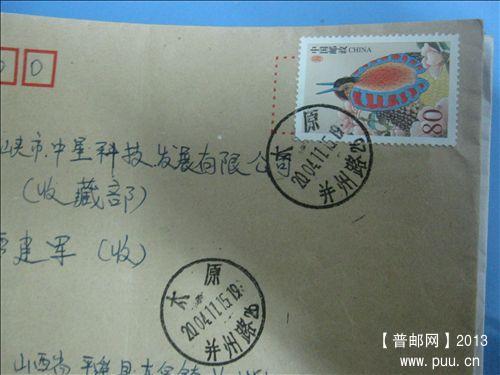 0 0
中国邮政 CHINA
80
太原
2004.11.15.19
并州路
峡市中星科技发展有限公司
(收藏部)
建军 (收)
太原
2004.11.15.19
并州路
山西省平
【普邮网】2013
www.puu.cn